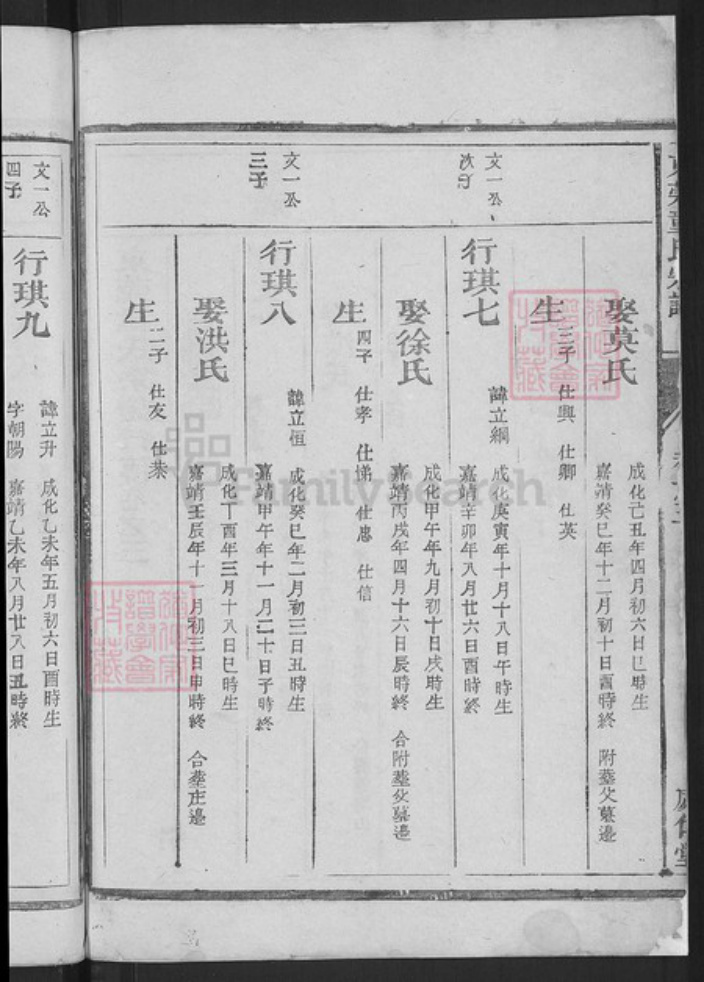 娶莫氏
成化己丑年四月初六日巳時生
嘉靖癸巳年十二月初十日酉時終 附塟父墓邉
生
三子 仕興 仕卿 仕英
文一公
次子
行琪七
諱立綱 成化庚寅年十月十八日午時生
嘉靖辛卯年八月廿六日酉時終
娶徐氏
成化甲午年九月初十日戌時生
嘉靖丙戌年四月十六日辰時終 合附塟父墓邉
生
四子 仕孝 仕悌 仕忠 仕信
文一公
三子
行琪八
諱立恒 成化癸巳年二月初三日丑時生
嘉靖甲午年十一月二十日子時終
娶洪氏
成化丁酉年三月十八日巳時生
嘉靖壬辰年十一月初三日申時終 合塟庄邉
生
二子 仕友 仕恭
文一公
四子
行琪九
諱立升 成化乙未年五月初六日酉時生
字朝陽 嘉靖乙未年八月廿八日丑時終
FamilySearch